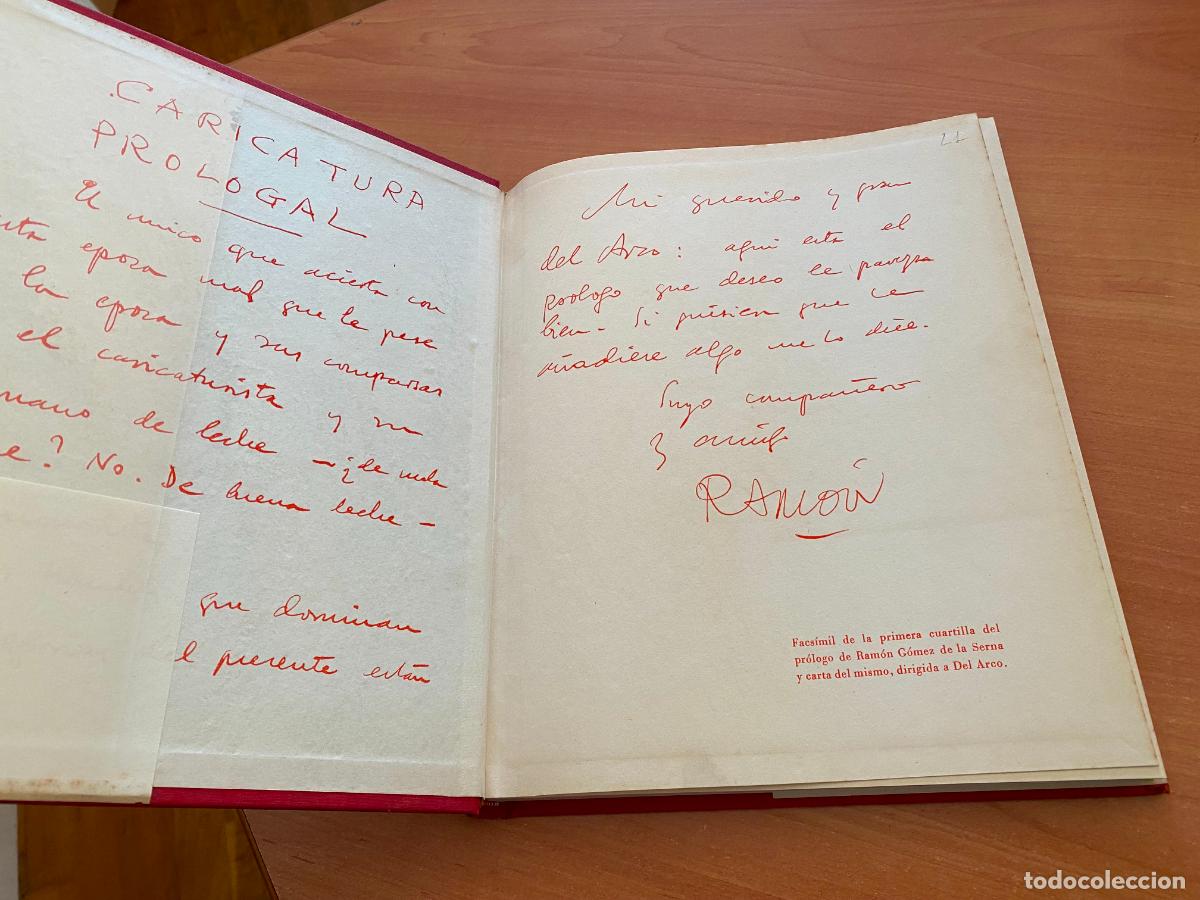 .CARICATURA
PROLOGAL
El unico que acierta con
esta epoca mal que le pese
la epoca y sus comparsas
el caricaturista y su
mano de leche - ¿de mala
e? No. De buena leche -
que dominan
el presente están
21
Mi querido y gran
del Arco: aqui esta el
prologo que deseo le parezca
bien - Si quisiera que se
añadiese algo me lo dice.
Suyo compañero
y amigo
RAMÓN
Facsímil de la primera cuartilla del
prólogo de Ramón Gómez de la Serna
y carta del mismo, dirigida a Del Arco.
todocoleccion